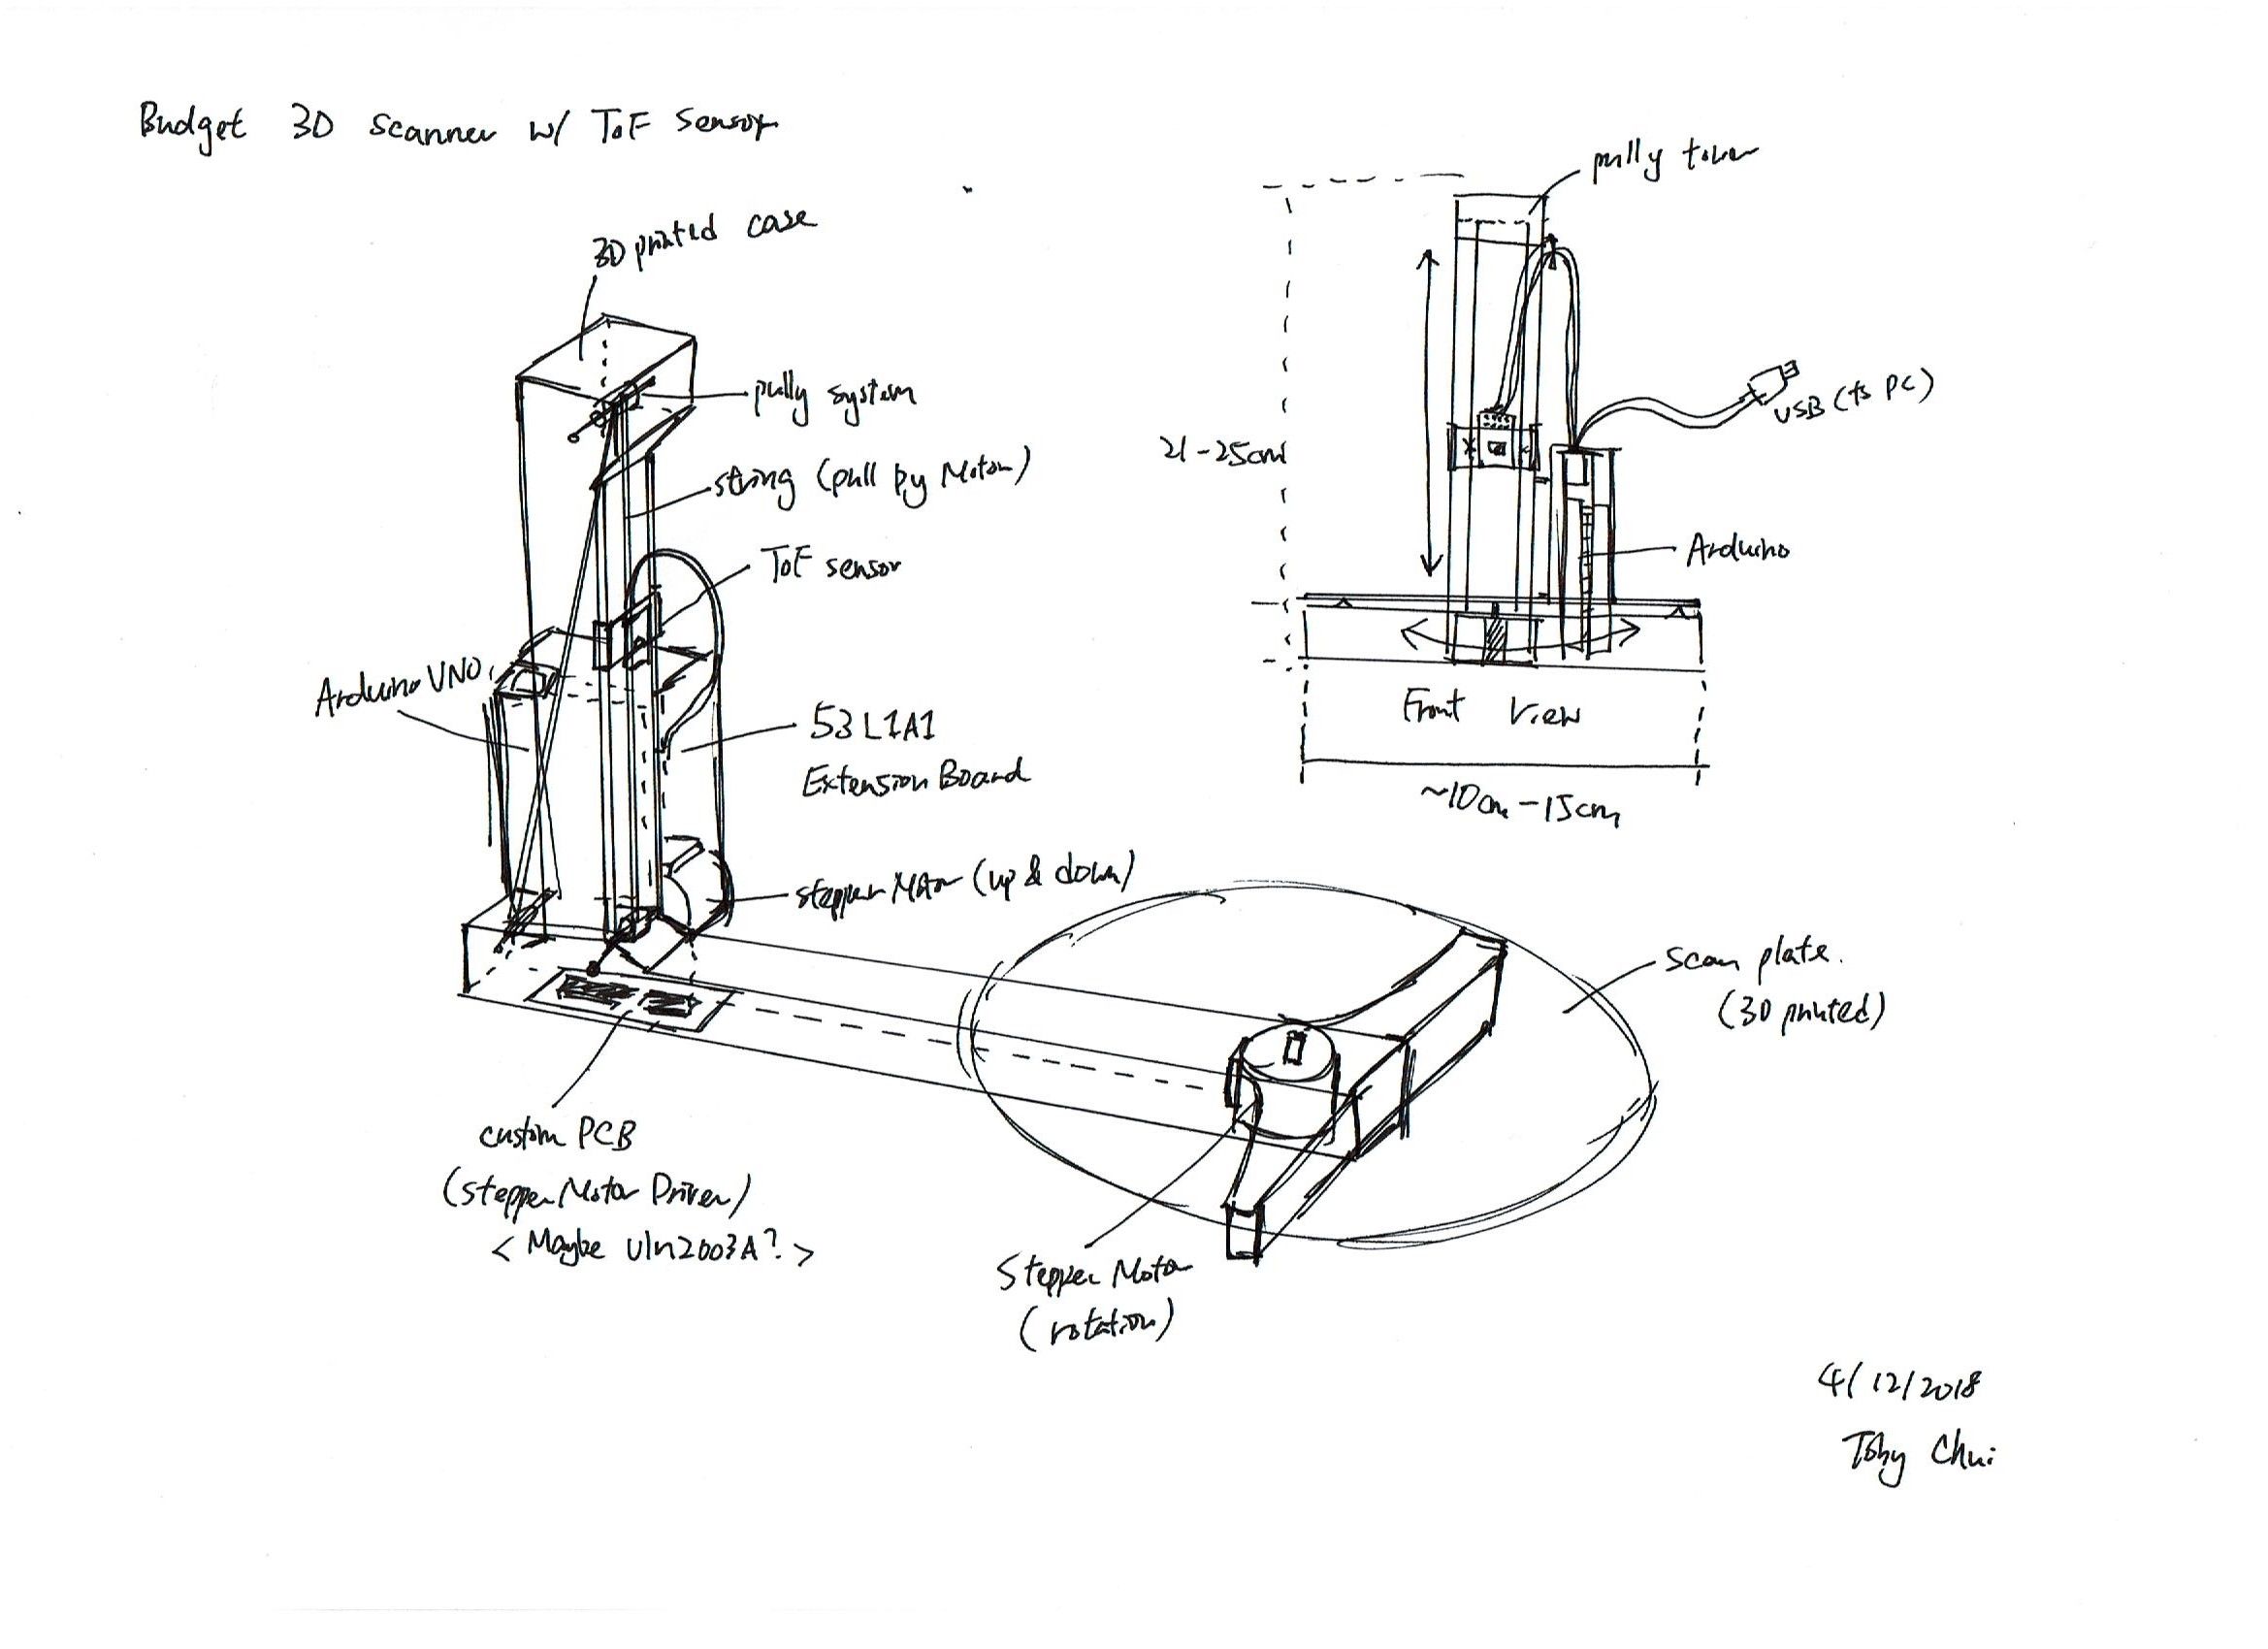 Budget 3D Scanner w/ ToF Sensor
3D printed case
pully system
string (pull by Motor)
ToF sensor
Arduino UNO
53L1A1
Extension Board
stepper Motor (up & down)
custom PCB
(stepper Motor Driver)
< Maybe uln2003A? >
Stepper Motor
(rotation)
scan plate.
(3D printed)
pully tower
21-25cm
USB (to PC)
Arduino
Front View
~10cm-15cm
4/12/2018
Toby Chui